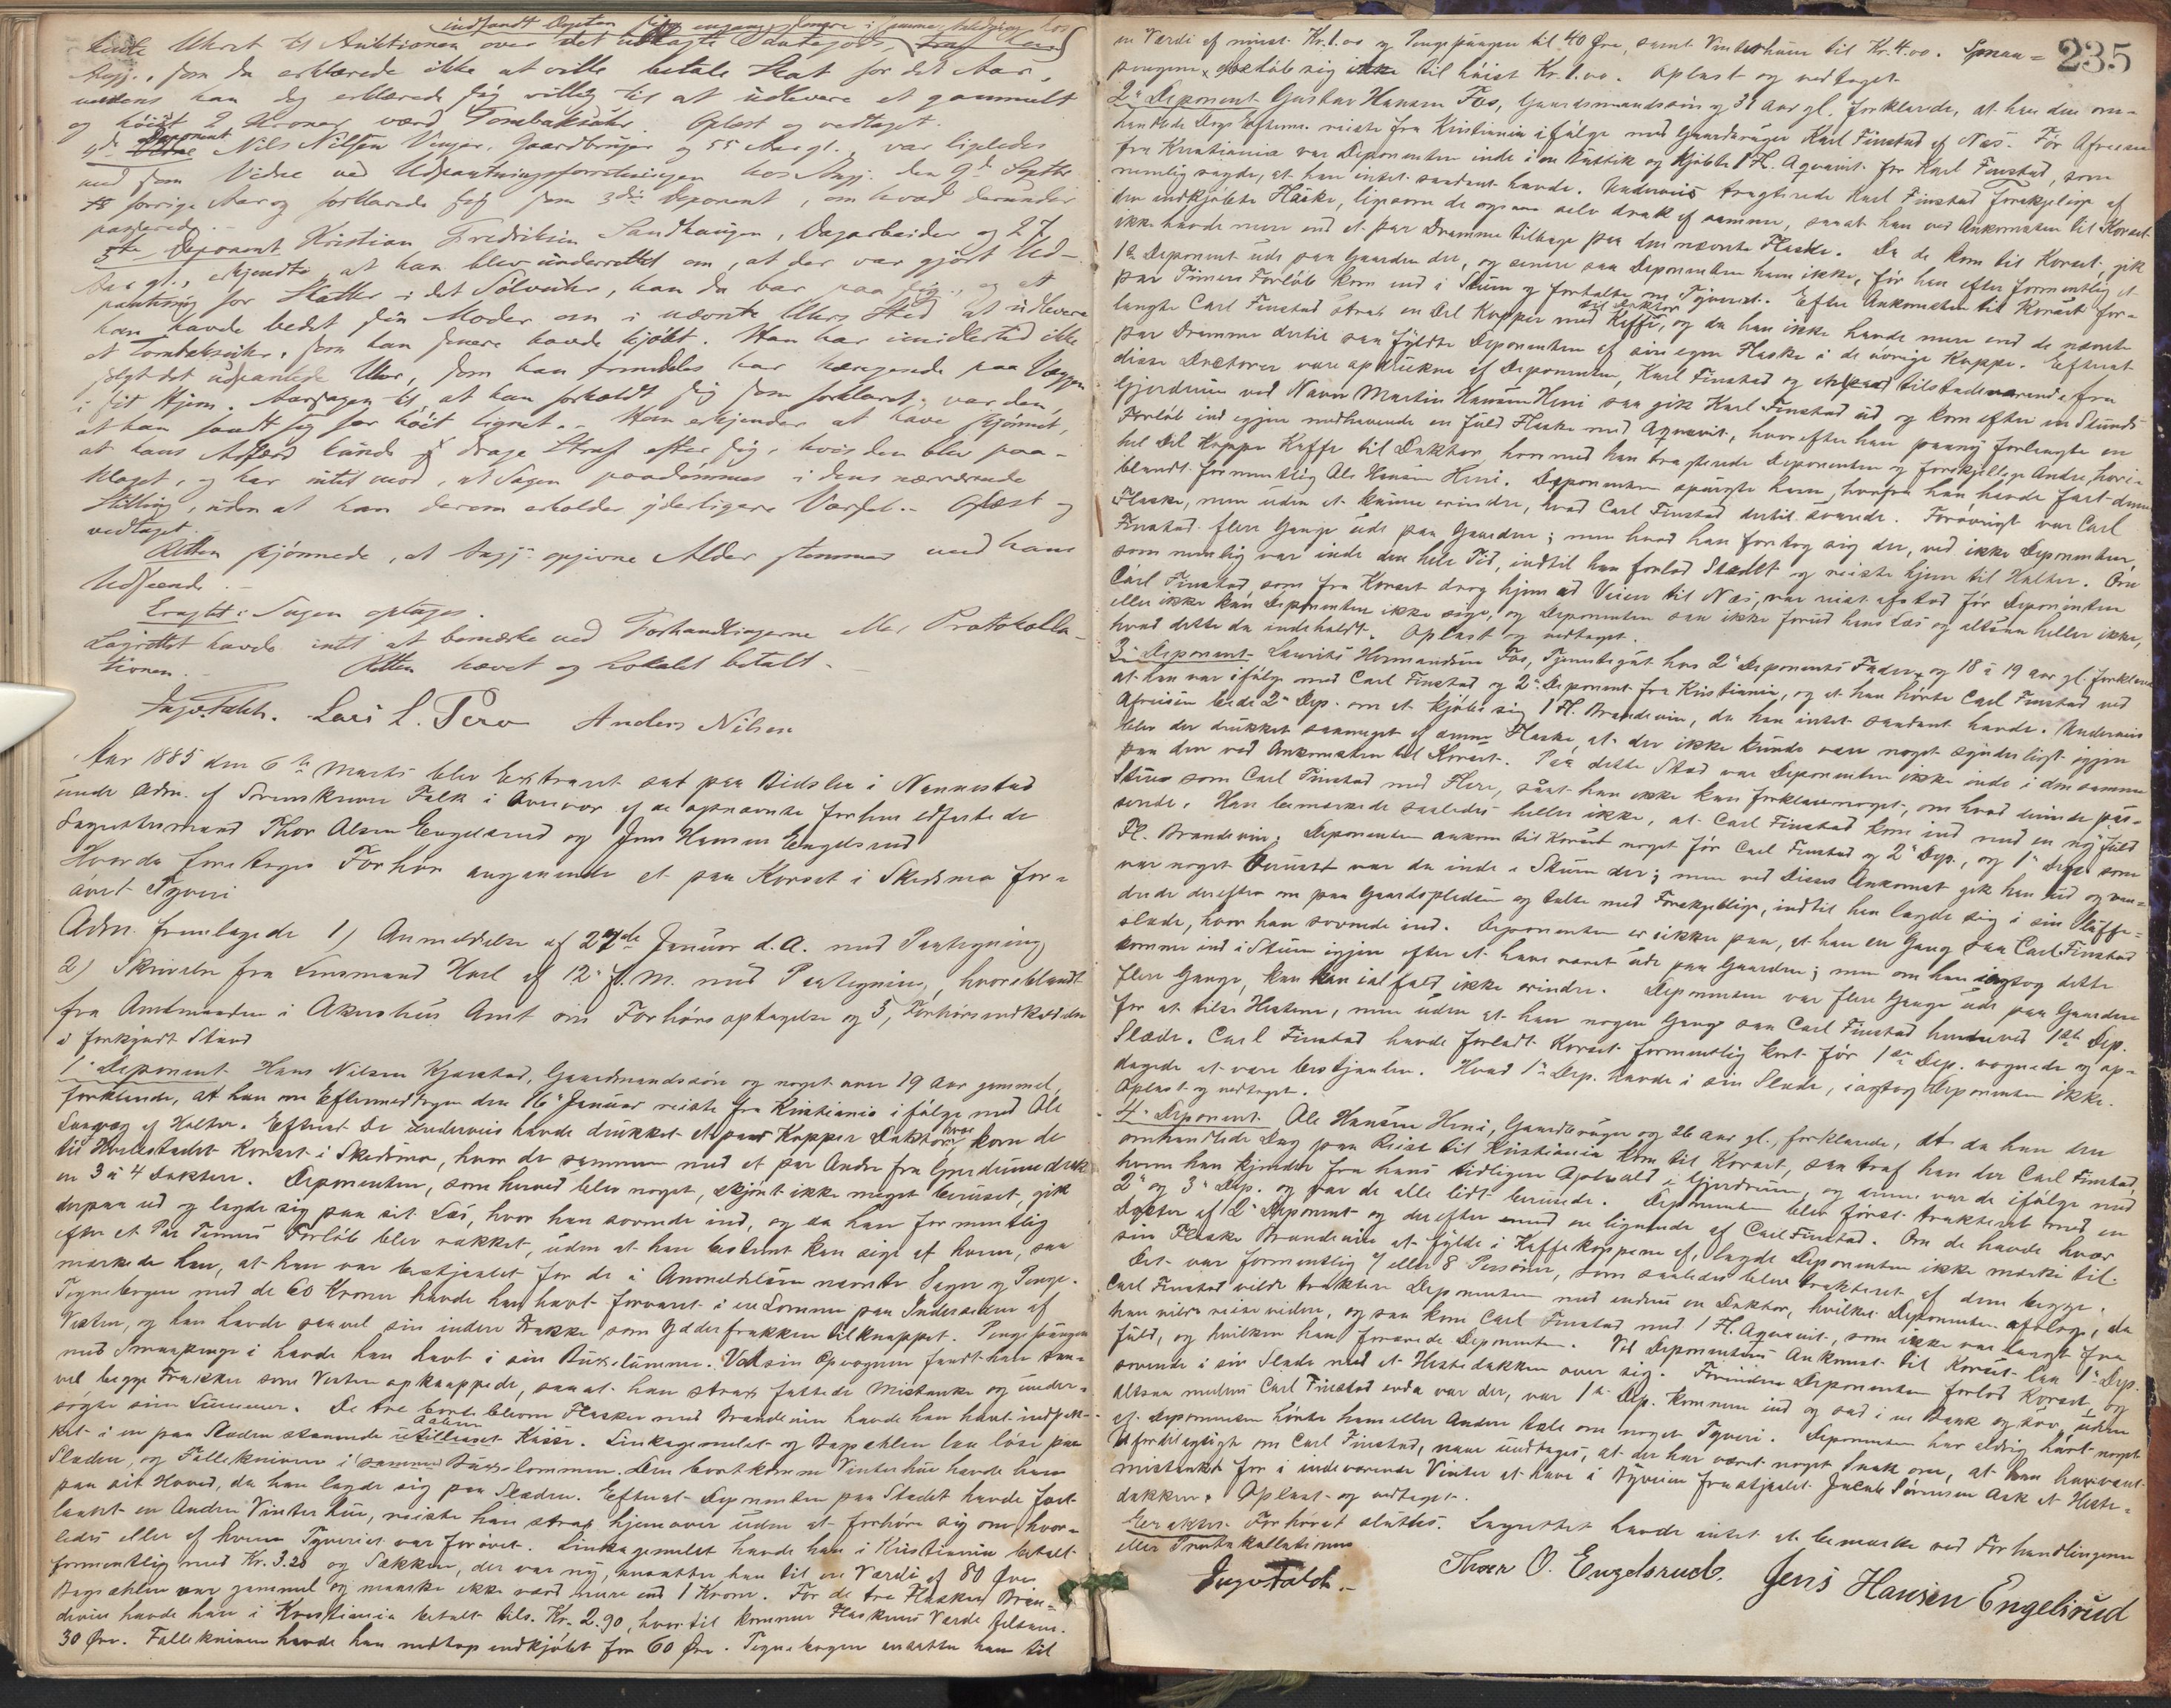 indfandt Deponten sig engang senere i samme Anledning hos
hente Uhret til Auktionen over det udlagte Pantegods,
Angj., som da erklærede ikke at ville betale Skat for det Aar,
medens han dog erklærede sig villig til at udlevere et gammelt
og høist 2 Kroner værd Tombaksuhr. Oplæst og vedtaget.
4de Deponent Nils Nilsen Venger, Gaardbruger og 55 Aar gl. var ligeledes
med som Vidne ved Udpantningsforretningen hos Angj. den 9de Septbr
forrige Aar og forklarede sig som 3die Deponent, om hvad derunder
passerede.-
5te Deponent Kristian Fredriksen Sandhaugen, Dagarbeider og 27
Aar gl., erkjendte at han blev underrettet om, at der var gjort Ud-
pantning for Skatter i det Sølvuhr, han da bar paa sig, og at
han havde bedt sin Moder om i nævnte Uhrs Sted at udlevere
et Tombaksuhr, som han senere havde kjøbt. Han har imidlertid ikke
solgt det udpantede Uhr, som han fremdeles har hængende paa Væggen
i sit Hjem. Aarsagen til, at han forholdt sig som forklaret, var den,
at han fandt sig for høit lignet.- Han erkjender at have skjønnet,
at hans Adfærd kunde drage Straf efter sig, hvis den blev paa-
klaget, og har intet imod, at Sagen paadømmes i dens nærværende
Stilling, uden at han derom erholder yderligere Varsel.- Oplæst og
vedtaget.
Retten skjønnede, at Angj. opgivne Alder stemmer med hans
Udseende.-
Eragtet: Sagen optages.
Lagrettet havde intet at bemærke ved Forhandlingerne eller Protokolla-
tionen. Retten hævet og Lokalet betalt.-
Ingv. Falch. Lars L. Pero Anders Nilsen
Aar 1885 den 6te Marts blev Extraret sat paa Bidslie i Nannestad
under Adm. af Sorenskriver Falk i Overvær af de opnævnte forhen edfæstede
Lagrettesmænd Thor Olsen Engelsrud og Jens Hansen Engelsrud
Hvorda foretages Forhør angaaende et paa Korset i Skedsmo for-
øvet Tyveri
Adm. fremlagde 1) Anmeldelse af 27de Januar d. A. med Paategning
2) Skrivelse fra Lensmand Huel af 12' f. M. med Paategning, hvoriblandt
fra Amtmanden i Akershus Amt om Forhørs optagelse og 3, Forhørsindkaldelse
i forkyndt Stand
1' Deponent Hans Nilsen Kjærstad, Gaardmandssøn og noget over 19 Aar gammel,
forklarede, at han om Eftermiddagen den 16' Januar reiste fra Kristiania i følge med Ole
Langvæg af Holter. Efterat De underveis havde drukket et par Kopper Daktor hver kom de
til Hvilestedet Korset i Skedsmo, hvor de sammen med et par Andre fra Gjerdrum drak
en 3 à 4 Daktere. Deponenten, som herved blev noget, skjønt ikke meget beruset, gik
derpaa ud og lagde sig paa sit Læs, hvor han sovnede ind, og da han formentlig
efter et Par Timers Forløb blev vækket, uden at han bestemt kan sige af hvem, saa
mærkede han, at han var bestjaalet for de i Anmeldelsen nævnte Sager og Penge.
Tegnebogen med de 60 Kroner havde han havt forvaret i en Lomme paa Indersiden af
Vesten, og han havde saavel sin indere Frakke som Ydderfrakken tilknappet. Pengepungen
med Smaapenge i havde han havt i sin Buxelomme. Ved sin Opvognen fandt han saa-
vel begge Frakker som Vesten opknappede, saa at han strax fattede Mistanke og under-
søgte sine Lommer. De tre bortblevne Flasker med Brændevin havde han havt indpak-
ket i en paa Slæden staaende aaben Kasse. Linkagemelet og Bagsehlen laa løse paa
Slæden, og Follekniven i Buxelommen. Den bortkomne Vinterhue havde han
paa sit Hoved, da han lagde sig paa Slæden. Efterat Deponenten paa Stedet havde faat
laant en Anden Vinterhue, reiste han strax hjemover uden at forhøre sig om, hvor-
ledes eller af hvem Tyveriet var forøvet. Linkagemelet havde han i Kristiania betalt
formentlig med Kr. 3.20 og Sækken, der var ny, ansatte han til en Værdi af 80 Øre
Bagsehlen var gammel og maaske ikke værd mere end 1 Krone. For de tre Flasker Bræn-
devin havde han i Kristiania betalt tils. Kr. 2.90, hvortil kommer Flaskens Værdi tilsam.
30 Øre. Follekniven havde han nedtop indkjøbt for 60 Øre. Tegnebogen ansatte han til
235
en Værdi af mindst Kr. 1.00 og Pengepungen til 40 Øre, samt Vinterhuen til Kr. 4.00. Smaa-
pengene beløb sig ikke til høist Kr. 1.00. Oplæst og vedtaget
2' Deponent Gustav Hansen Fos, Gaardmandssøn og 31 Aar gl. forklarede, at han den om-
handlede Dags Efterm. reiste fra Kristiania i følge med Gaardbruger Karl Finstad af Næs. Før Afreisen
fra Kristiania var Deponenten inde i en Butik og kjøbte 1 Fl. Aqvavit for Karl Finstad, som
nemlig sagde, at han intet saadant havde. Underveis tragterede Karl Finstad Forskjellige af
den indkjøbte Flaske, ligesom de ogsaa selv drak af samme, saa at han ved Ankomsten til Korset
ikke havde mere end et par Dramme tilbage paa den nævnte Flaske. Da de kom til Korset, gik
1ste Deponent ude paa Gaarden der, og senere saa Deponenten ham ikke, før han efter formentlig et
par Timers Forløb kom ind i Stuen og fortalte om Tyveriet. Efter Ankomsten til Korset for-
langte Carl Finstad strax en Del Kopper med Kaffe til Daktor, og da han ikke havde mere end de nævnte
par Dramme dertil saa fyldte Deponenten af sin egen Flaske i de øvrige Koppe. Efterat
disse Doctorer vare opdrukne af Deponenten, Karl Finstad og en tilstedeværende fra
Gjerdrum ved Navn Martin Hansen Heni saa gik Karl Finstad ud og kom efter en Stunds
Forløb ind igjen medhavende en fuld Flaske med Aqvavit, hvorefter han paany forlangte en
hel Del Koppe Kaffe til Daktor, hvormed han tragterede Deponenten og forskjellige Andre, hvori-
blandt formentlig Ole Hansen Heni. Deponenten spurgte ham, hvorfra han havde faat denne
Flaske, men uden at kunne erindre, hvad Carl Finstad dertil svarede. Forøvrigt var Carl
Finstad flere Gange ude paa Gaarden; men hvad han foretog sig der, ved ikke Deponenten,
som nemlig var inde den hele Tid, indtil han forlod Stedet og reiste hjem til Holter. Om
Carl Finstad, som fra Korset drog hjem ad Veien til Næs, var reist afsted før Deponenten
eller ikke kan Deponenten ikke sige, og Deponenten saa ikke forud hans Læs og altsaa heller ikke,
hvad dette da indeholdt. Oplæst og vedtaget.
3' Deponent Laurits Hermandsen Fos, Tjenestegut hos 2' Deponents Fader, og 18 à 19 aar gl. forklarede
at han var ifølge med Carl Finstad og 2' Deponent fra Kristiania, og at han hørte Carl Finstad ved
Afreisen bede 2' Dep. om at kjøbe sig 1 Fl. Brændevin, da han intet saadant havde. Underveis
blev der drukket saameget af denne Flaske, at der ikke kunde være noget synderligt igjen
paa den ved Ankomsten til Korset. Paa dette Sted var Deponenten ikke inde i den samme
Stue som Carl Finstad med Flere, saa at han ikke kan forklare noget, om hvad derinde pas-
serede. Han bemærkede saaledes heller ikke, at Carl Finstad kom ind med en ny fuld
Fl. Brændevin. Deponenten ankom til Korset noget før Carl Finstad og 2' Dep., og 1' Dep. som
var noget beruset var da inde i Stuen der; men ved Disses Ankomst gik han ud og van-
drede derefter om paa Gaardspladsen og talte med Forskjellige, indtil han lagde sig i sin Sluffe-
slæde, hvor han sovnede ind. Deponenten er sikker paa, at han en Gang saa Carl Finstad
komme ind i Stuen igjen efter at have været ude paa Gaarden; men om han iagttog dette
flere Gange, kan han ialfald ikke erindre. Deponenten var flere Gange ude paa Gaarden
for at tilse Hestene, men uden at han nogen Gang saa Carl Finstad henne ved 1ste Dep.
Slæde. Carl Finstad havde forladt Korset formentlig kort før 1ste Dep. vognede og op-
dagede at være bestjaalen. Hvad 1' Dep. havde i sin Slæde, iagttog Deponenten ikke.
Oplæst og vedtaget.
4' Deponent Ole Hansen Heni, Gaardbruger og 26 aar gl., forklarede, at da han den
omhandlede Dag paa Reise til Kristiania kom til Korset, saa traf han der Carl Finstad,
hvem han kjendte fra hans tidligere Ophold i Gjerdrum, og denne var da ifølge med
2' og 3' Dep. og var de alle lidt berusede. Deponenten blev først trakteret med en
Dokter af 2' Deponent og derefter med en lignende af Carl Finstad. Om de havde hver
sin Flaske Brændevin at fylde i Kaffekoppene af, lagde Deponenten ikke mærke til.
Det var formentlig 7 eller 8 Personer, som saaledes blev trakteret af dem begge.
Carl Finstad vilde traktere Deponenten med endnu en Daktor, hvilket Deponenten afslog, da
han vilde reise videre, og saa kom Carl Finstad med 1 Fl. Aqvavit, som ikke var langt fra
fuld, og hvilken han forærede Deponenten. Ved Deponentens Ankomst til Korset laa 1' Dep.
sovende i sin Slæde med et Hestedækken over sig. Forinden Deponenten forlod Korset, og
altsaa medens Carl Finstad enda var der, var 1' Dep. kommen ind og sad i en Bænk og sov, uden
at Deponenten hørte ham eller Andre tale om noget Tyveri. Deponenten har aldrig hørt noget
Ufordelagtigt om Carl Finstad, naar undtages, at der har været noget Snak om, at han har været
mistænkt for i indeværende Vinter at have i Nyveien frastjaalet Jacob Sørensen Ask et Heste-
dækken. Oplæst og vedtaget.
Eragtet: Forhøret sluttes. Lagrettet havde intet at bemærke ved Forhandlingerne
eller Protokollationen
Ingv Falch.- Thoer O. Engelsrud. Jens Hansen Engelsrud